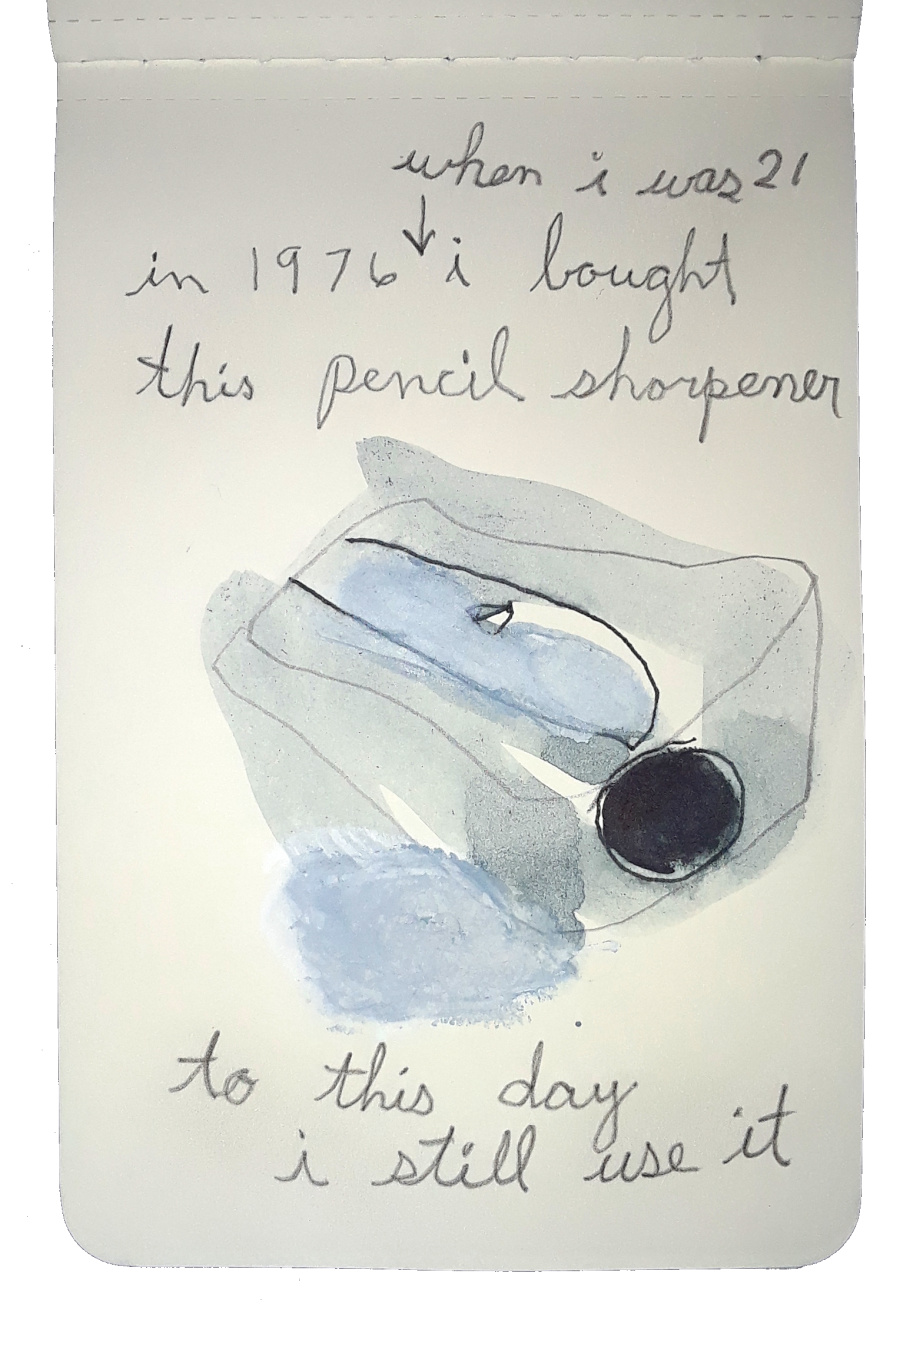 when i was 21
in 1976 ↓ i bought
this pencil sharpener
to this day
i still use it